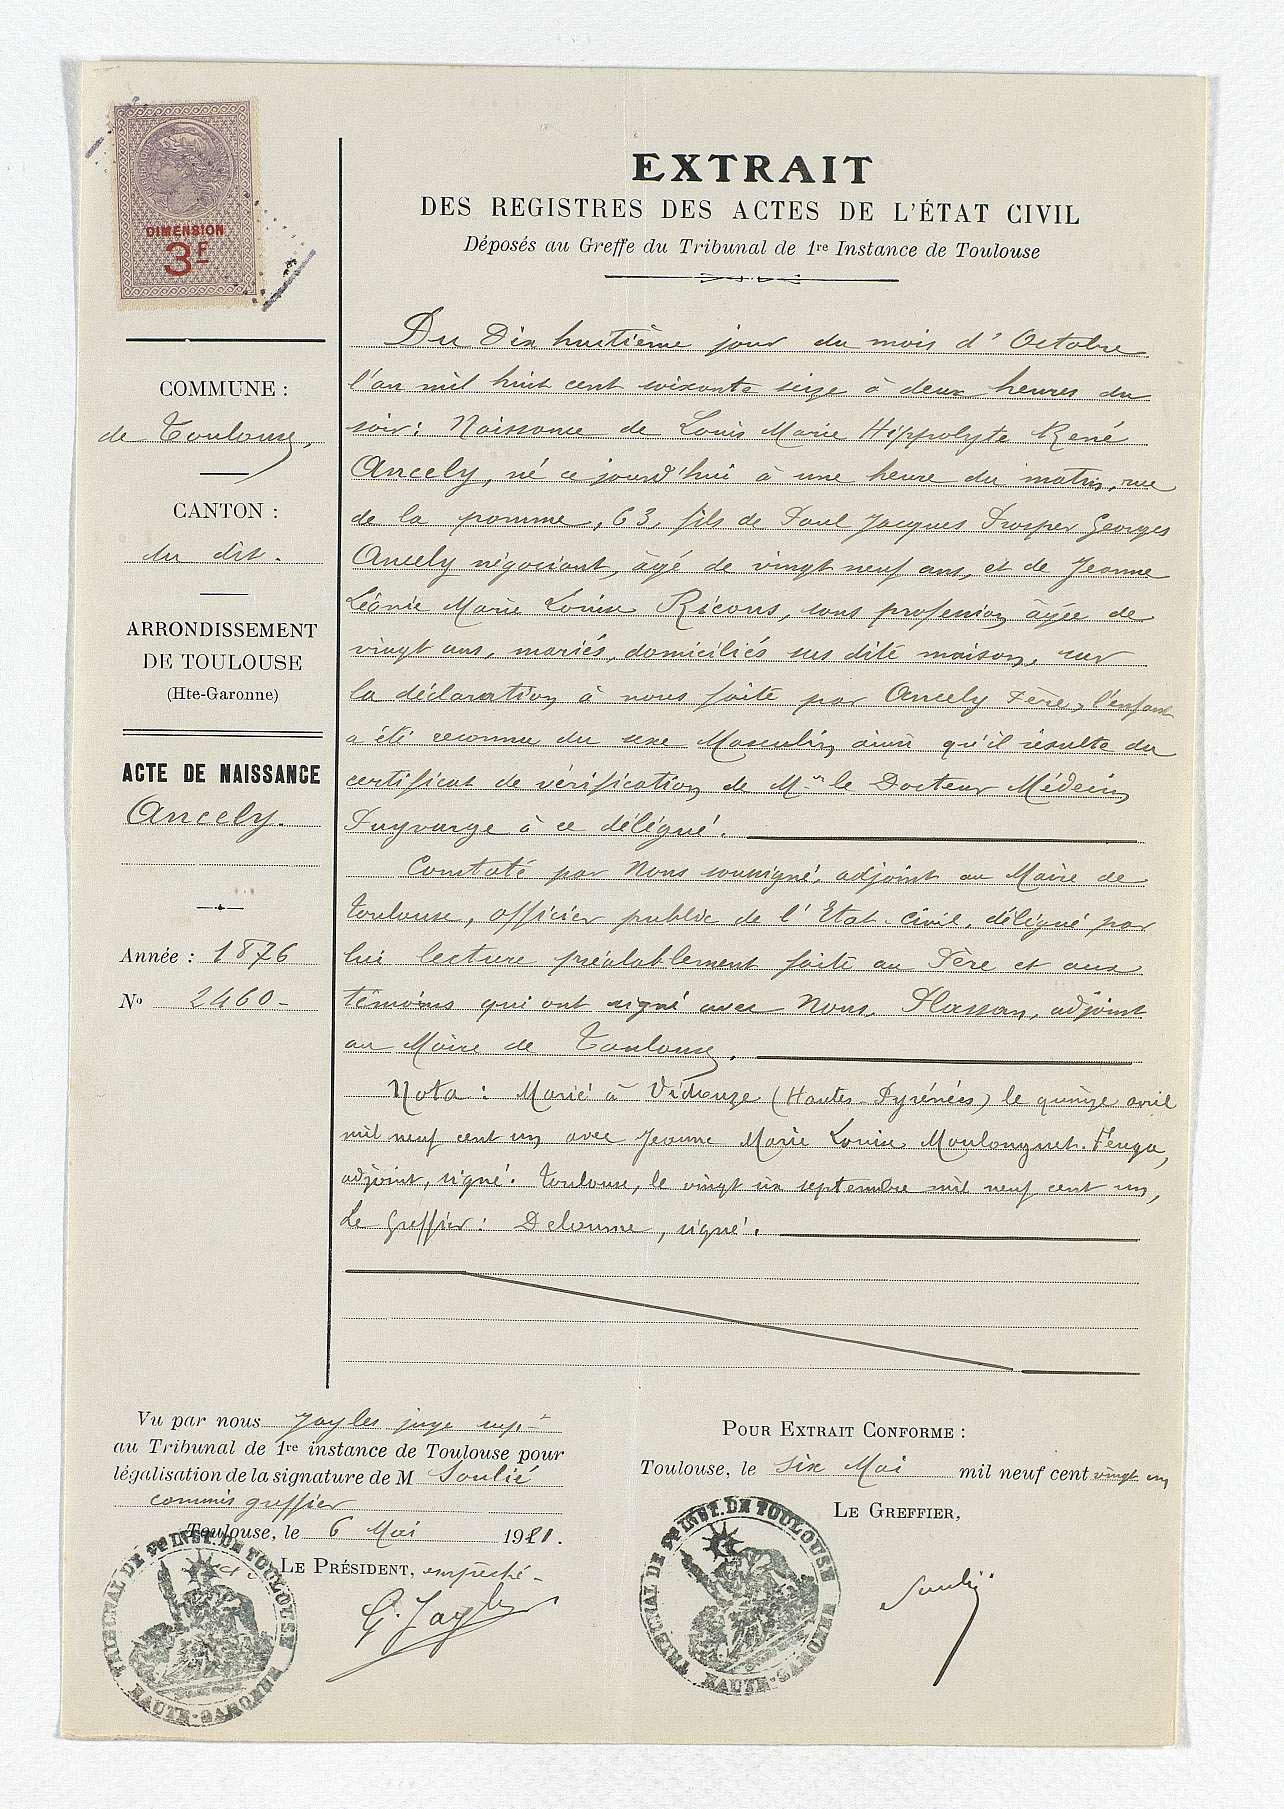 DIMENSION
3F
EXTRAIT
DES REGISTRES DES ACTES DE L'ÉTAT CIVIL
Déposés au Greffe du Tribunal de 1re Instance de Toulouse
COMMUNE :
de Toulouse,
CANTON :
du dit.
ARRONDISSEMENT
DE TOULOUSE
(Hte-Garonne)
ACTE DE NAISSANCE
Ancely.
Année : 1876
No 2460-
Du Dix huitième jour du mois d'Octobre
l'an mil huit cent soixante seize à deux heures du
soir : Naissance de Louis Marie Hippolyte René
Ancely, né ce jourd'hui à une heure du matin, rue
de la pomme, 63, fils de Paul Jacques Prosper Georges
Ancely négociant, âgé de vingt neuf ans, et de Jeanne
Léonie Marie Louise Ricous, sans profession âgée de
vingt ans, mariés, domiciliés sus dite maison, sur
la déclaration à nous faite par Ancely Père, l'enfant
a été reconnu du sexe Masculin ainsi qu'il résulte du
certificat de vérification de Mr le Docteur Médecin
à ce délégué.
Constaté par Nous soussigné, adjoint au Maire de
Toulouse, officier public de l'Etat-Civil, délégué par
lui lecture préalablement faite au Père et aux
témoins qui ont signé avec Nous. Plassan, adjoint
au Maire de Toulouse.
Nota : Marié à Vidouze (Hautes-Pyrénées) le quinze avril
mil neuf cent un avec Jeanne Marie Louise Moulonguet. Feuga,
adjoint, signé. Toulouse, le vingt six septembre mil neuf cent un,
Le Greffier : Deloume, signé.
Vu par nous Jayles juge supt
au Tribunal de 1re instance de Toulouse pour
légalisation de la signature de M Soulié
commis greffier
Toulouse, le 6 Mai 1921.
LE PRÉSIDENT, empêché-
G. Jayles
POUR EXTRAIT CONFORME :
Toulouse, le six Mai mil neuf cent vingt un
LE GREFFIER,
Soulié
TRIBUNAL DE 1re INST. DE TOULOUSE
HAUTE-GARONNE
TRIBUNAL DE 1re INST. DE TOULOUSE
HAUTE-GARONNE